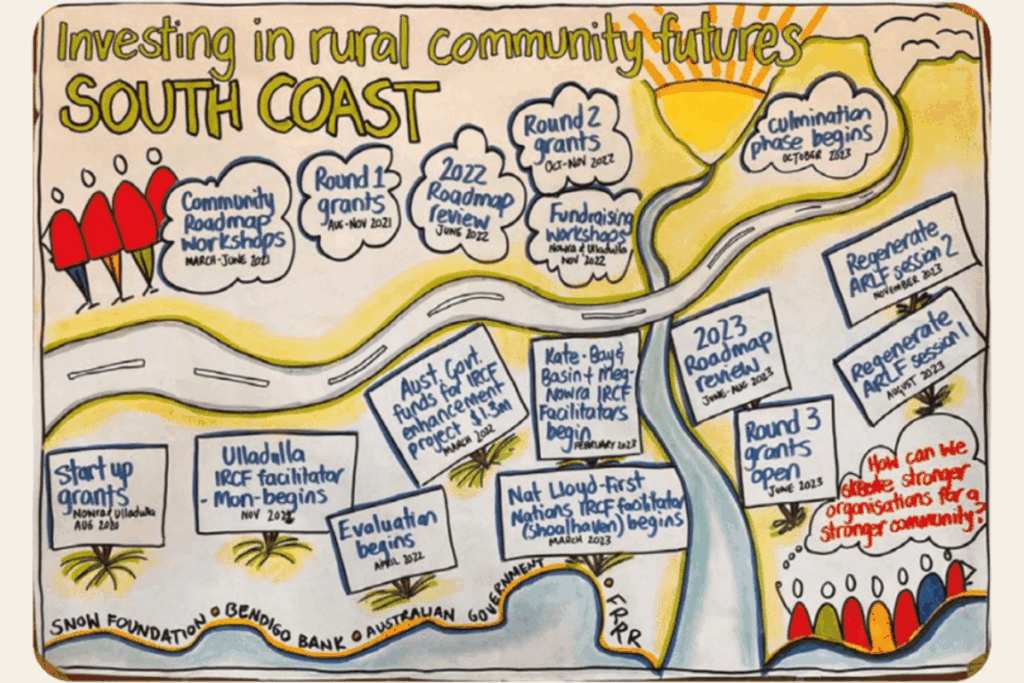 Investing in rural community futures
SOUTH COAST
Community
Roadmap
workshops
MARCH-JUNE 2021
Round 1
grants
AUG-NOV 2021
2022
Roadmap
review
JUNE 2022
Round 2
grants
OCT-NOV 2022
Fundraising
workshops
Nowra & Ulladulla
NOV 2022
culmination
phase begins
OCTOBER 2023
Regenerate
ARLF session 2
NOVEMBER 2023
Regenerate
ARLF session 1
AUGUST 2023
2023
Roadmap
review
JUNE-AUG 2023
Round 3
grants
open
JUNE 2023
Kate-Bay &
Basin + Meg-
Nowra IRCF
Facilitators
begin
FEBRUARY 2023
Aust. Govt.
funds for IRCF
enhancement
project $1.3m
MARCH 2022
Start up
grants
Nowra & Ulladulla
AUG 2020
Ulladulla
IRCF facilitator
- Mon-begins
NOV 2021
Evaluation
begins
APRIL 2022
Nat Lloyd-First
Nations IRCF facilitator
(Shoalhaven) begins
MARCH 2023
How can we
create stronger
organisations for a
stronger community?
SNOW FOUNDATION • BENDIGO BANK • AUSTRALIAN GOVERNMENT • FRRR